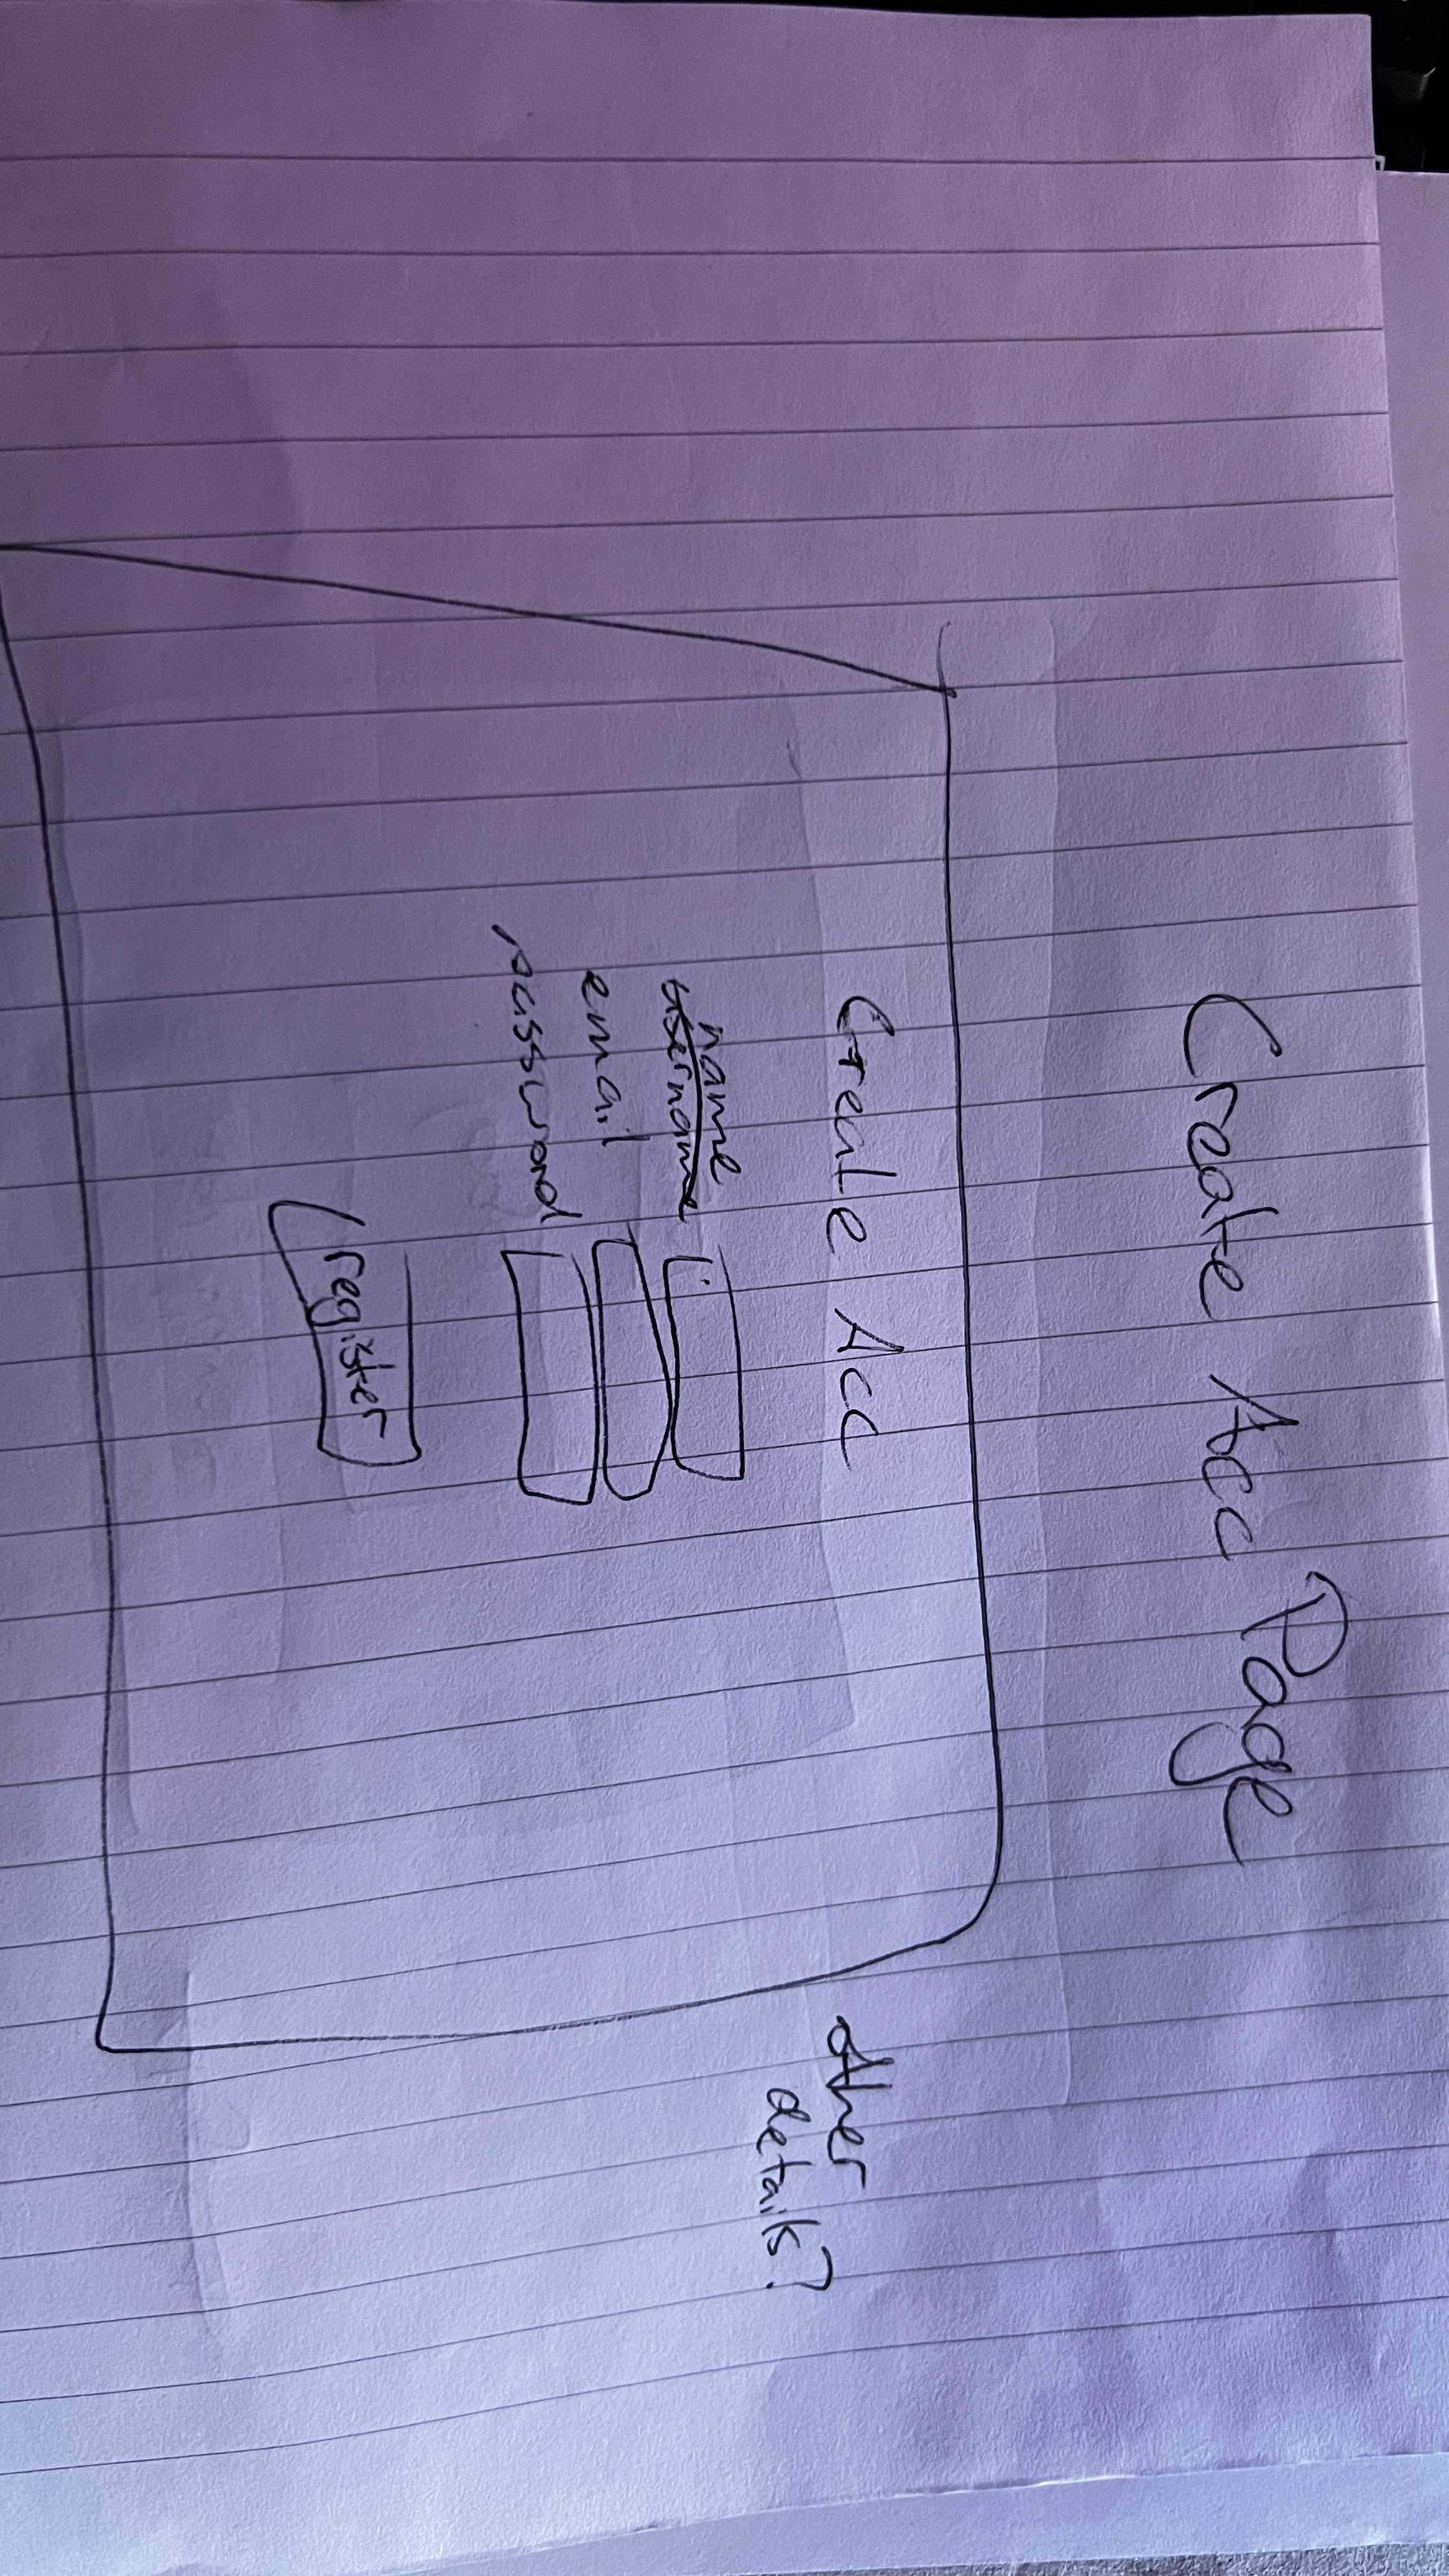 Create Acc Page
Create Acc
name
username
email
password
register
other
details?